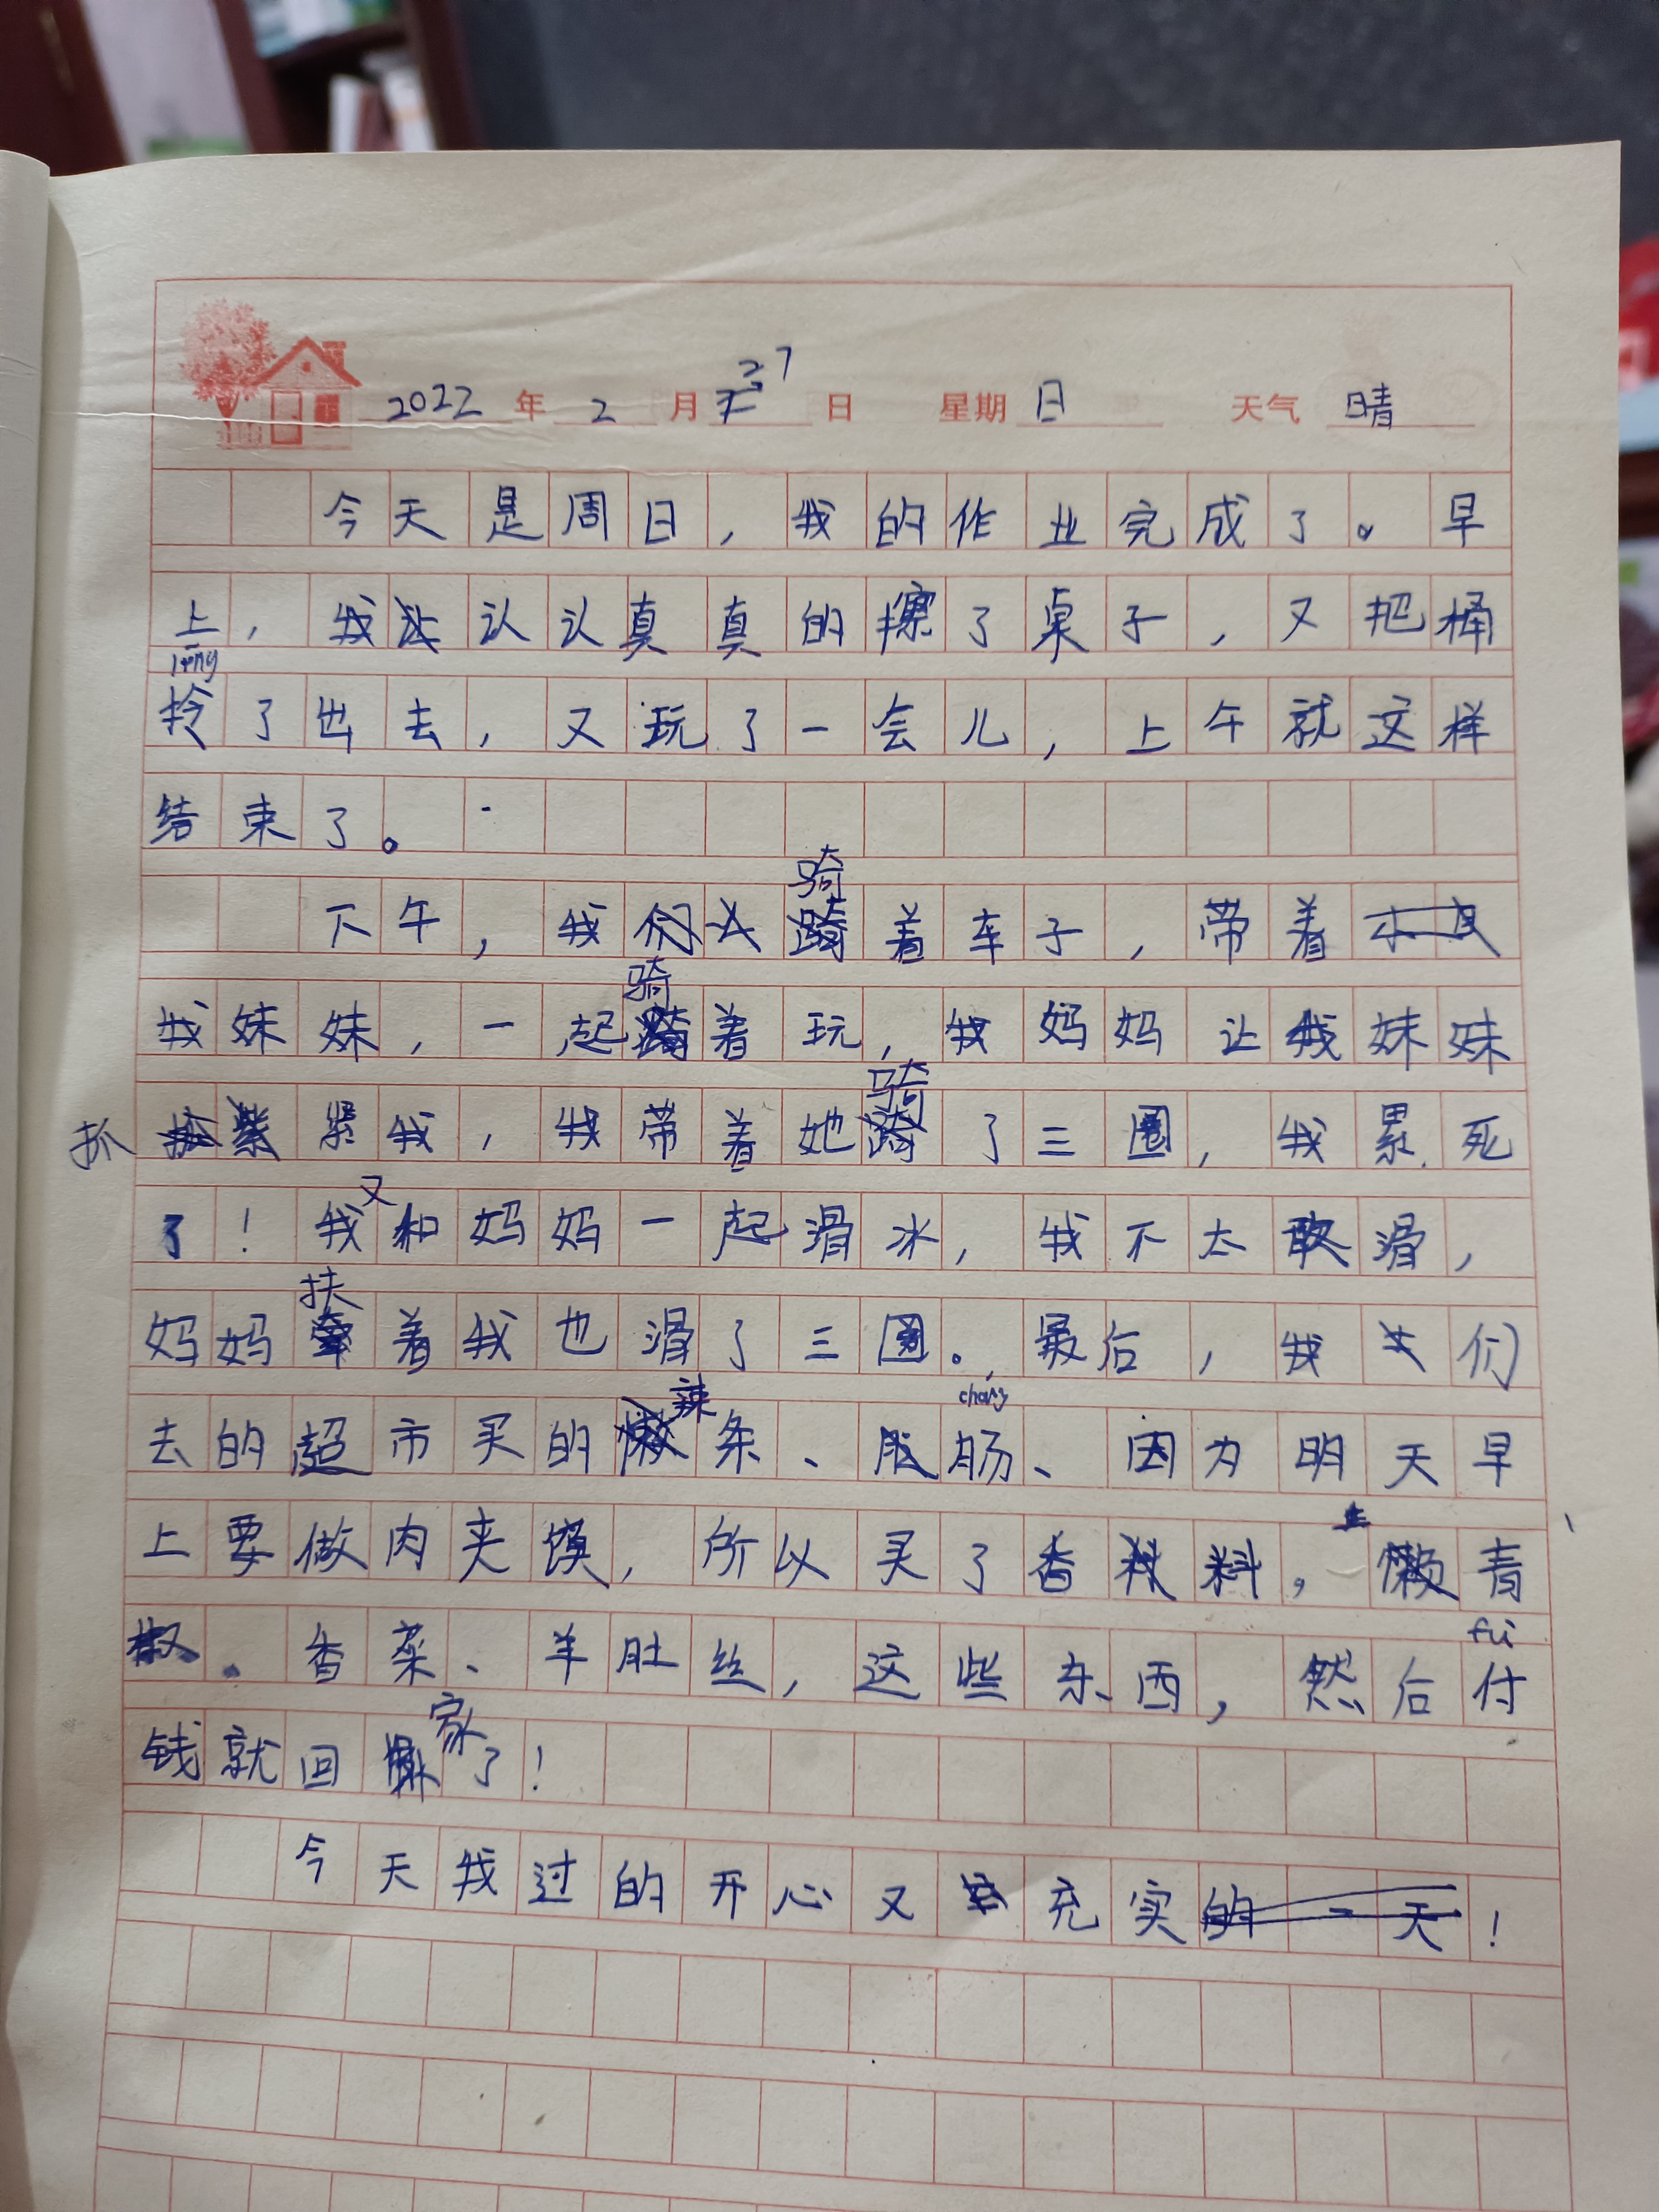 2022年2月27日 星期日 天气晴
今天是周日，我的作业完成了。早
上，我认认真真的擦了桌子，又把桶
拎了出去，又玩了一会儿，上午就这样
结束了。
下午，我骑着车子，带着
我妹妹，一起骑着玩，我妈妈让我妹妹
抓紧我，我带着她骑了三圈，我累死
了！我又和妈妈一起滑冰，我不太敢滑，
妈妈扶着我也滑了三圈。最后，我们
去的超市买的辣条、肠、因为明天早
chang
上要做肉夹馍，所以买了香料，青
椒。香菜、羊肚丝，这些东西，然后付
fu
钱就回家了！
今天我过的开心又充实！